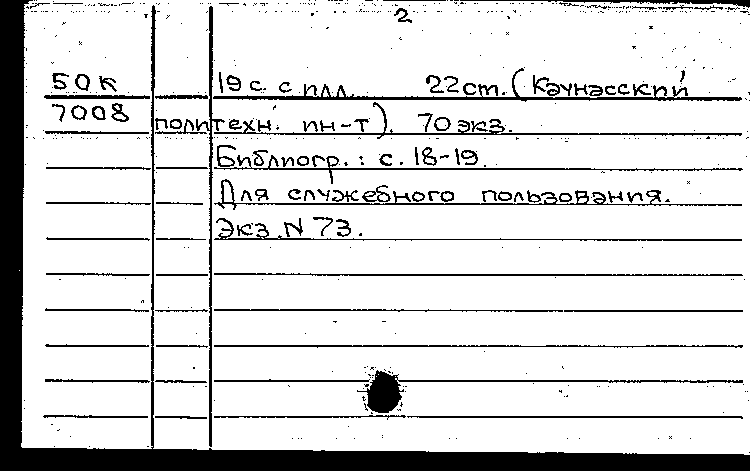 2
50к 19с. с илл. 22ст. (Каунасский
7008 политехн. ин-т). 70 экз.
Библиогр.: с. 18-19.
Для служебного пользования.
Экз. N 73.